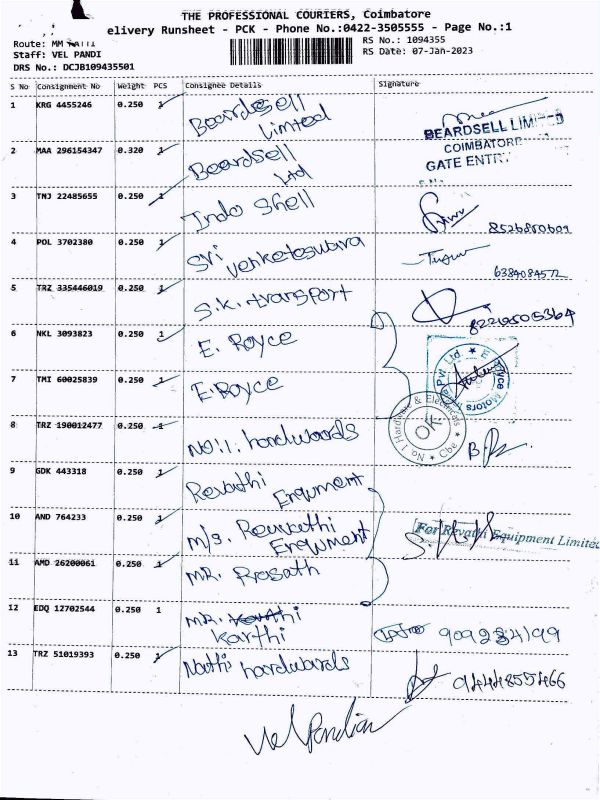 THE PROFESSIONAL COURIERS, Coimbatore
elivery Runsheet - PCK - Phone No.:0422-3505555 - Page No.:1
Route: MM
RS No.: 1094355
Staff: VEL PANDI
RS Date: 07-Jan-2023
DRS No.: DCJB109435501
S No Consignment No Weight PCS Consignee Details Signature
1 KRG 4455246 0.250 1 Beardsell Limted
BEARDSELL LIMITED
COIMBATORE
GATE ENTRY
2 MAA 296154347 0.320 1 Beardsell Ltd
3 TNJ 22485655 0.250 1 Indo Shell
4 POL 3702380 0.250 1 Sri Venketeswara
6384084572
5 TRZ 335446019 0.250 1 S.K. transport
6 NKL 3093823 0.250 1 E. Royce
7 TMI 60025839 0.250 1 E Royce
Pvt Ltd
Motors
8 TRZ 190012477 0.250 1 No:1. hardwoards
No 1 Hardware & Electricals Cbe
OK
9 GDK 443318 0.250 1 Revathi Equment
10 AND 764233 0.250 1 m/s. Revathi Equment
For Revathi Equipment Limited
11 AMD 26200061 0.250 1 MR. Prasath
12 EDQ 12702544 0.250 1 MR. Karthi
Karthi
13 TRZ 51019393 0.250 1 hardwards
9444855466
Vel Pandian